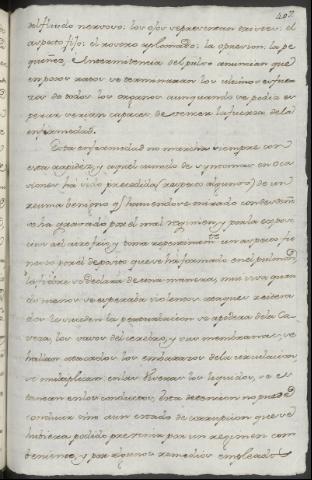 407
del fluido nervoso: los ojos se presentan tristes: el
aspecto fijo: el rostro aplomado: la opresion: la pe
queñez, è Intermitencia del pulso anuncian que
en pocos ratos se terminaran los ultimos esfuer
zos de todos los organos aunquando se podia es
perar serian capaces de vencer la fuerza de la
enfermedad.
Esta enfermedad no marcha siempre con
esta rapidez, y aquel cumulo de sintomas en oca
siones ha sido precedida (respecto algunos) de un
reuma benigno q.e haviendose mirado con
se ha gravado por el mal regimen, y por la expos
cion al aire frio, y toma repentinam.te un aspecto fu
nesto por el deposito que se ha formado en el pulmon,
la fiebre se declara de una manera, mas viva quan
do menos se esperaba violentos ataques reitera
dos le suceden la perturbacion se apodera de la Ca
veza, los vasos del cerebro, y sus membranas, se
hallan atacados los embarazos de la circulacion,
se multiplican en las viceras los liquidos, se es
tancan en los conductos, esta detencion no puede
conducir sino a un estado de corrupcion que se
hubiera podido precaver por un regimen con
beniente, y por algunos remedios empleados